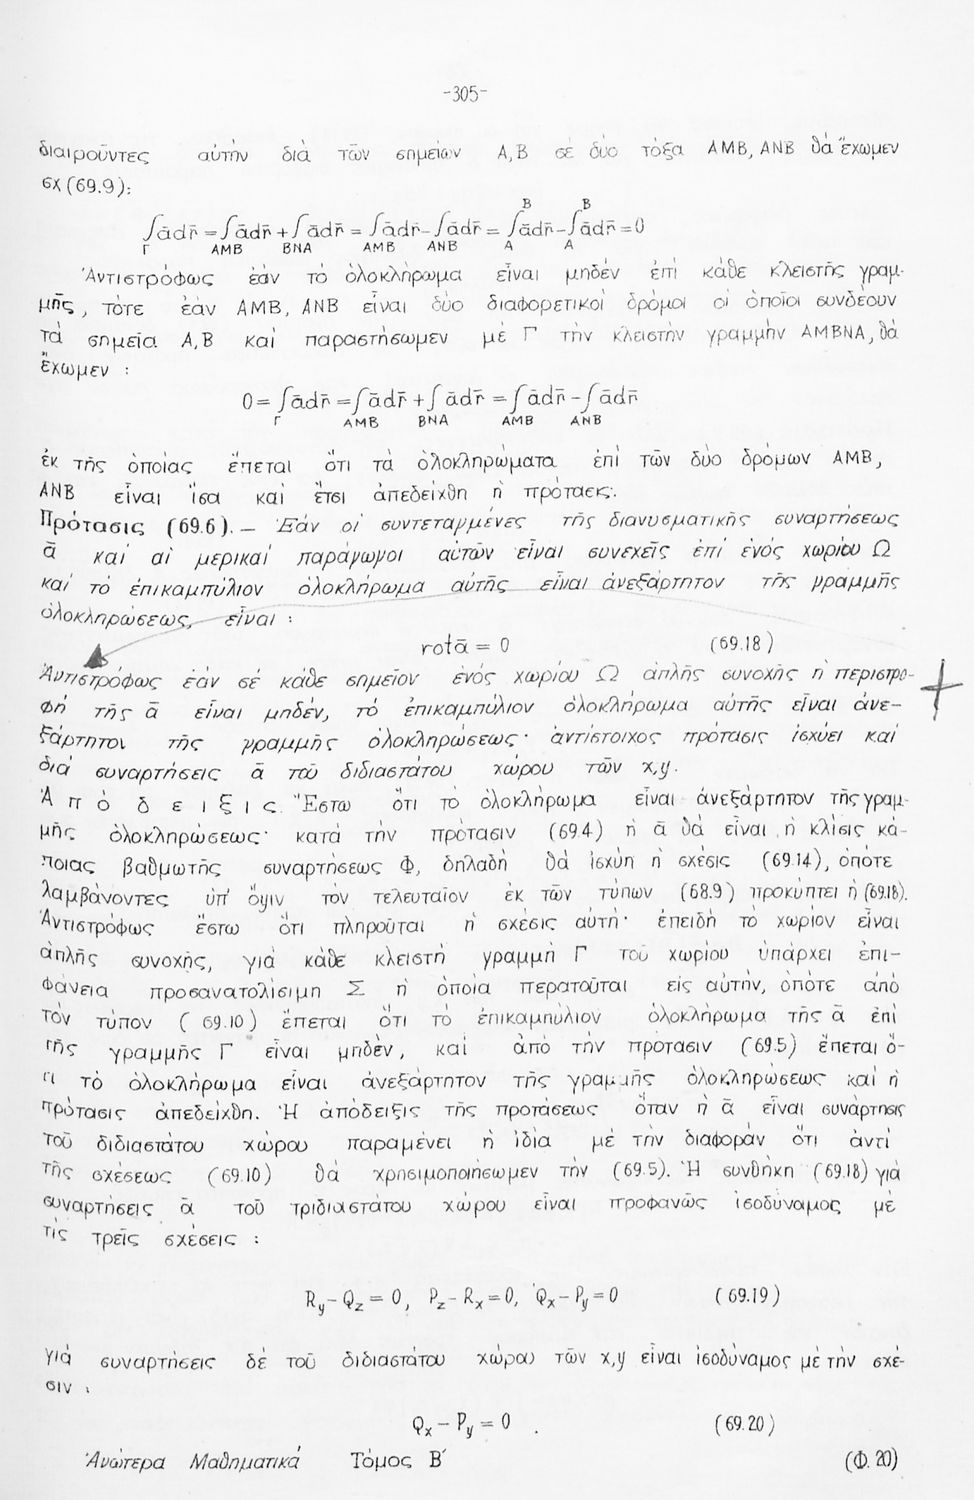 -305-
διαιροῦντες αὐτήν διά τῶν σημείων Α,Β σέ δύο τόξα ΑΜΒ, ΑΝΒ θά ἔχωμεν
σχ(69.9):
∫ādr̄ = ∫ādr̄ + ∫ādr̄ = ∫ādr̄ - ∫ādr̄ = ∫ādr̄ - ∫ādr̄ = 0
Γ ΑΜΒ ΒΝΑ ΑΜΒ ΑΝΒ Α Β Α Β
Ἀντιστρόφως ἐάν τό ὁλοκλήρωμα εἶναι μηδέν ἐπί κάθε κλειστῆς γραμ-
μῆς, τότε ἐάν ΑΜΒ, ΑΝΒ εἶναι δύο διαφορετικοί δρόμοι οἱ ὁποῖοι συνδέουν
τά σημεῖα Α,Β καί παραστήσωμεν μέ Γ τήν κλειστήν γραμμήν ΑΜΒΝΑ, θά
ἔχωμεν :
0 = ∫ādr̄ = ∫ādr̄ + ∫ādr̄ = ∫ādr̄ - ∫ādr̄
Γ ΑΜΒ ΒΝΑ ΑΜΒ ΑΝΒ
ἐκ τῆς ὁποίας ἕπεται ὅτι τά ὁλοκληρώματα ἐπί τῶν δύο δρόμων ΑΜΒ,
ΑΝΒ εἶναι ἴσα καί ἔτσι ἀπεδείχθη ἡ πρότασις.
Πρότασις (69.6).— Ἐάν οἱ συντεταγμένες τῆς διανυσματικῆς συναρτήσεως
ā καί αἱ μερικαί παράγωγοι αὐτῶν εἶναι συνεχεῖς ἐπί ἑνός χωρίου Ω
καί τό ἐπικαμπύλιον ὁλοκλήρωμα αὐτῆς εἶναι ἀνεξάρτητον τῆς γραμμῆς
ὁλοκληρώσεως, εἶναι :
rotā = 0 (69.18)
Ἀντιστρόφως ἐάν σέ κάθε σημεῖον ἑνός χωρίου Ω ἁπλῆς συνοχῆς ἡ περιστρο-
φή τῆς ā εἶναι μηδέν, τό ἐπικαμπύλιον ὁλοκλήρωμα αὐτῆς εἶναι ἀνε-
ξάρτητον τῆς γραμμῆς ὁλοκληρώσεως· ἀντίστοιχος πρότασις ἰσχύει καί
διά συναρτήσεις ā τοῦ διδιαστάτου χώρου τῶν x,y.
Ἀ π ό δ ε ι ξ ι ς. Ἔστω ὅτι τό ὁλοκλήρωμα εἶναι ἀνεξάρτητον τῆς γραμ-
μῆς ὁλοκληρώσεως· κατά τήν πρότασιν (69.4) ἡ ā θά εἶναι ἡ κλίσις κά-
ποιας βαθμωτῆς συναρτήσεως Φ, δηλαδή θά ἰσχύη ἡ σχέσις (69.14), ὁπότε
λαμβάνοντες ὑπ' ὄψιν τόν τελευταῖον ἐκ τῶν τύπων (68.9) προκύπτει ἡ (69.18).
Ἀντιστρόφως ἔστω ὅτι πληροῦται ἡ σχέσις αὐτή· ἐπειδή τό χωρίον εἶναι
ἁπλῆς συνοχῆς, γιά κάθε κλειστή γραμμή Γ τοῦ χωρίου ὑπάρχει ἐπι-
φάνεια προσανατολίσιμη Σ ἡ ὁποία περατοῦται εἰς αὐτήν, ὁπότε ἀπό
τόν τύπον (69.10) ἕπεται ὅτι τό ἐπικαμπύλιον ὁλοκλήρωμα τῆς ā ἐπί
τῆς γραμμῆς Γ εἶναι μηδέν, καί ἀπό τήν πρότασιν (69.5) ἕπεται ὅ-
τι τό ὁλοκλήρωμα εἶναι ἀνεξάρτητον τῆς γραμμῆς ὁλοκληρώσεως καί ἡ
πρότασις ἀπεδείχθη. Ἡ ἀπόδειξις τῆς προτάσεως ὅταν ἡ ā εἶναι συνάρτησις
τοῦ διδιαστάτου χώρου παραμένει ἡ ἰδία μέ τήν διαφοράν ὅτι ἀντί
τῆς σχέσεως (69.10) θά χρησιμοποιήσωμεν τήν (69.5). Ἡ συνθήκη (69.18) γιά
συναρτήσεις ā τοῦ τριδιαστάτου χώρου εἶναι προφανῶς ἰσοδύναμος μέ
τίς τρεῖς σχέσεις :
R_y - Q_z = 0, P_z - R_x = 0, Q_x - P_y = 0 (69.19)
γιά συναρτήσεις δέ τοῦ διδιαστάτου χώρου τῶν x,y εἶναι ἰσοδύναμος μέ τήν σχέ-
σιν :
Q_x - P_y = 0 . (69.20)
Ἀνώτερα Μαθηματικά Τόμος Β΄ (Φ. 20)